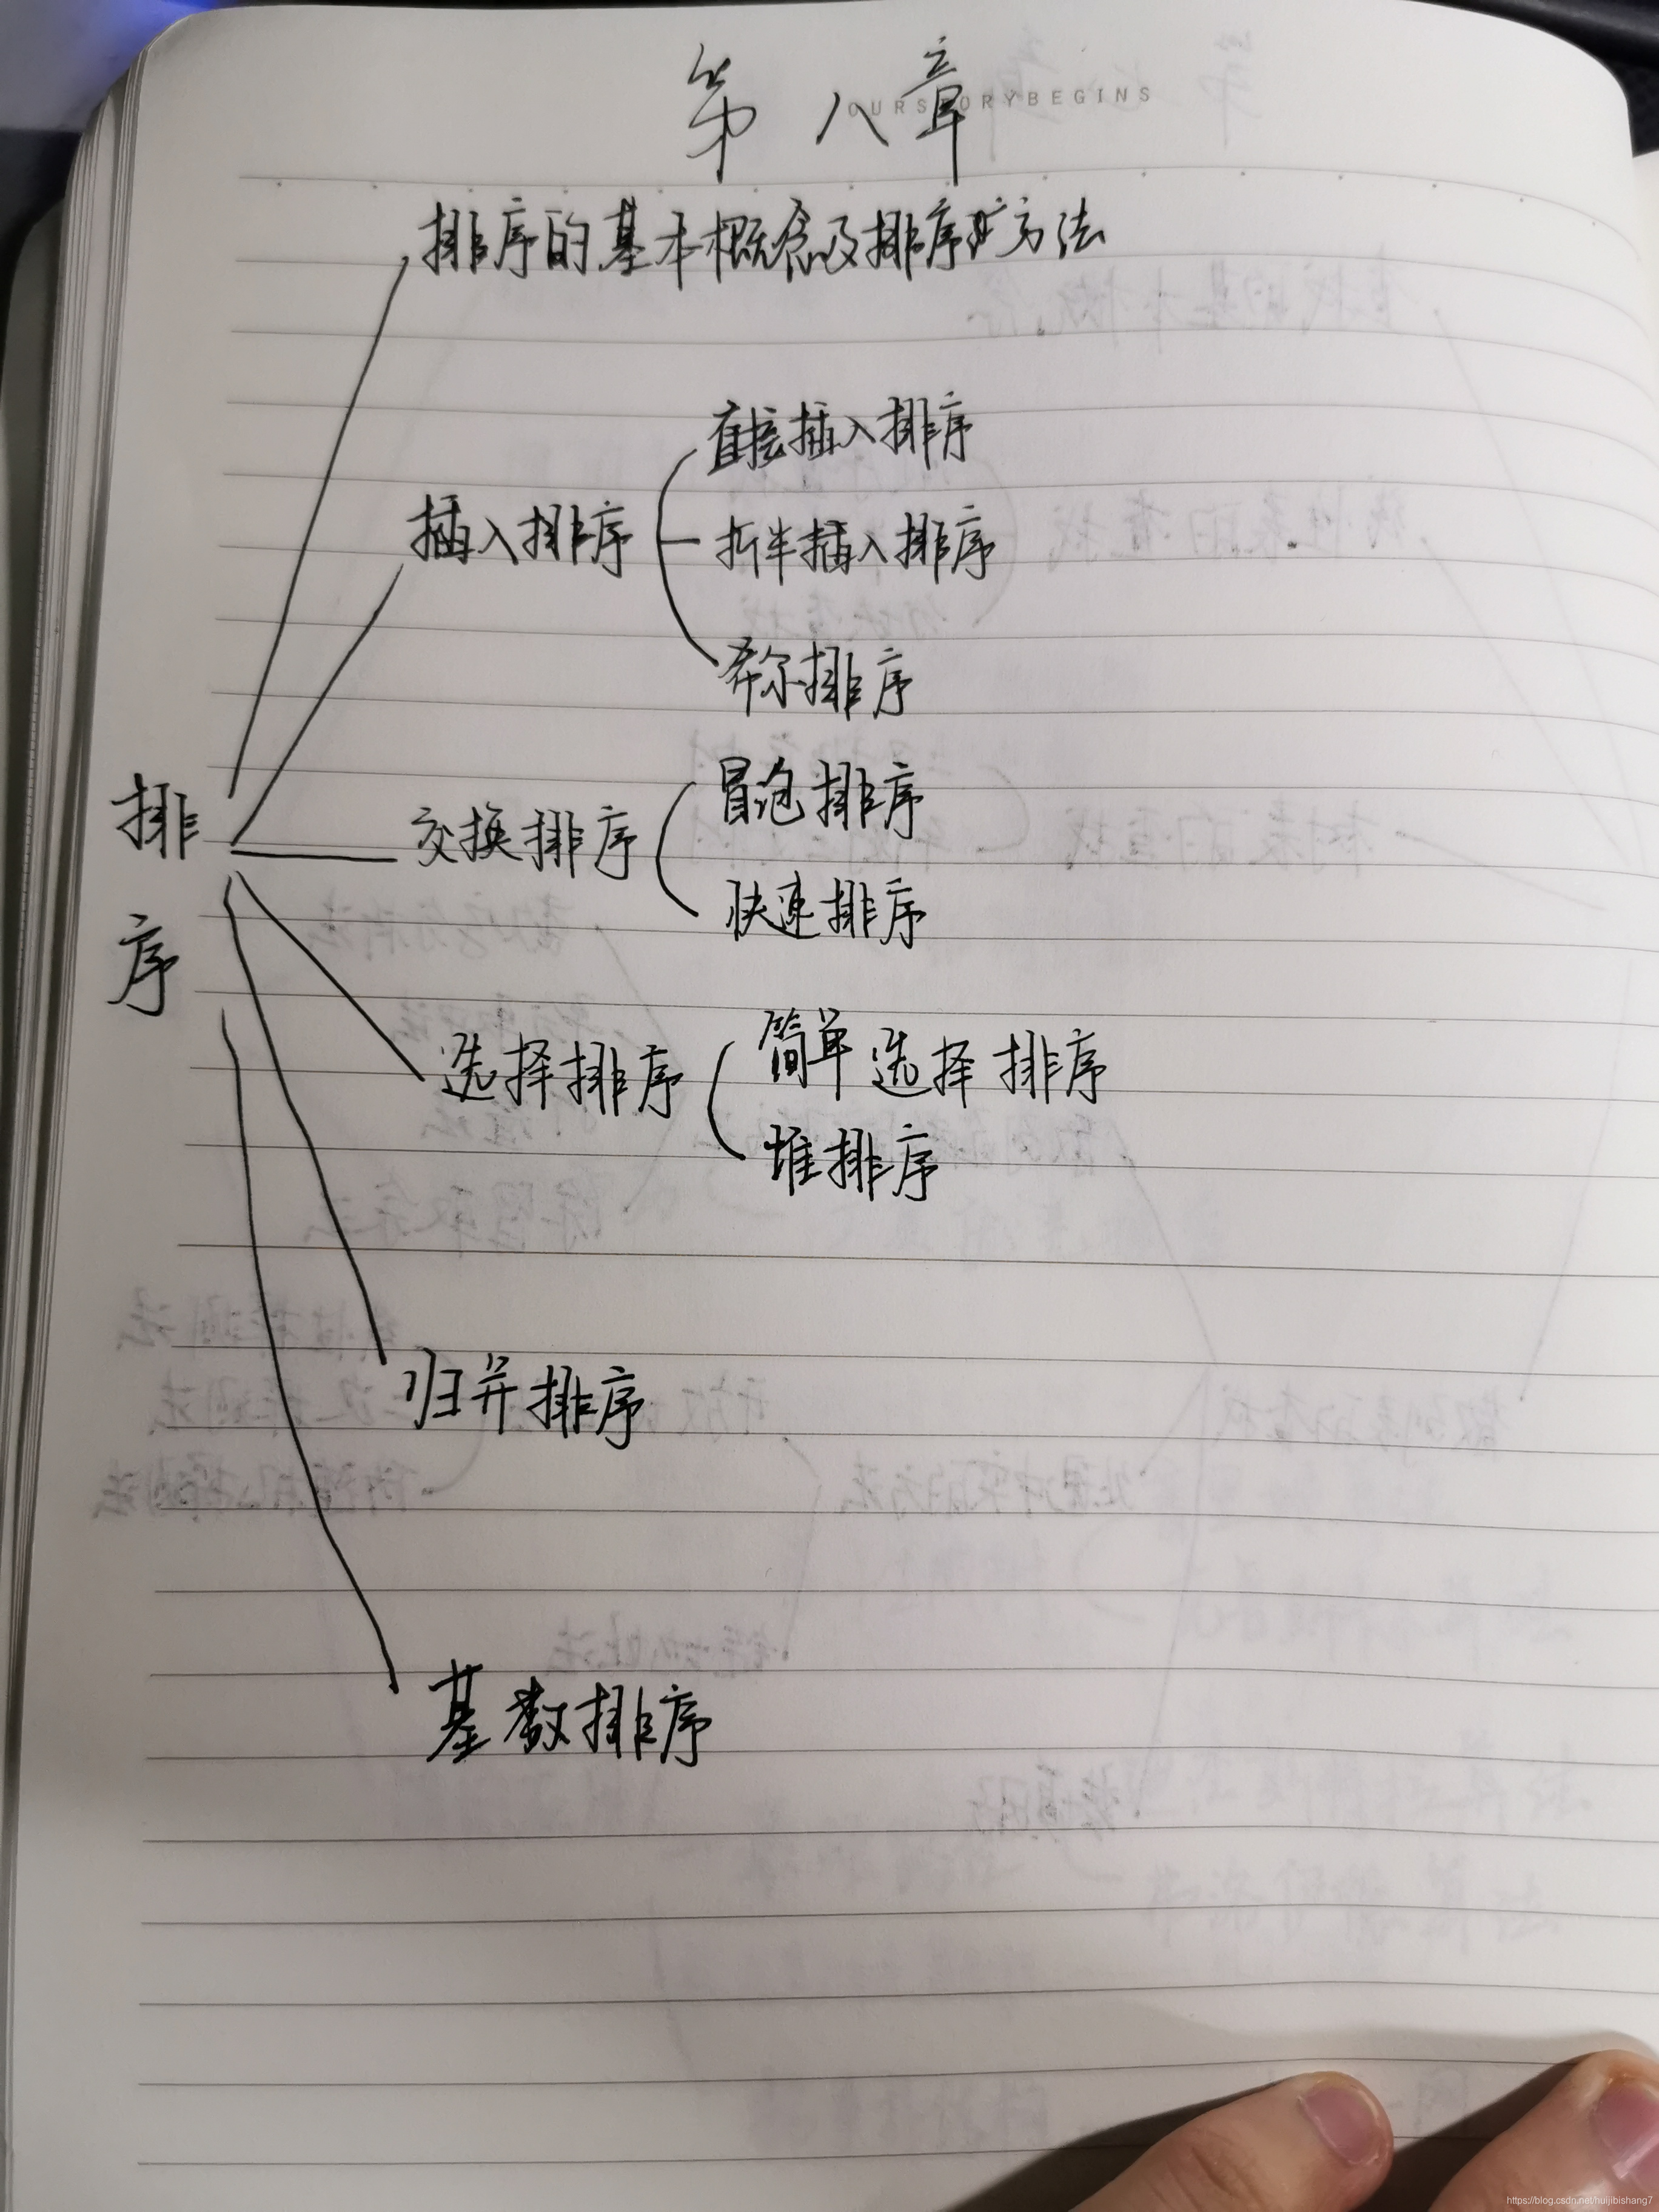 第八章
OURSTORYBEGINS
排序的基本概念及排序方法
直接插入排序
插入排序
折半插入排序
希尔排序
冒泡排序
排序
交换排序
快速排序
简单选择排序
选择排序
堆排序
归并排序
基数排序
https://blog.csdn.net/huijibishang7